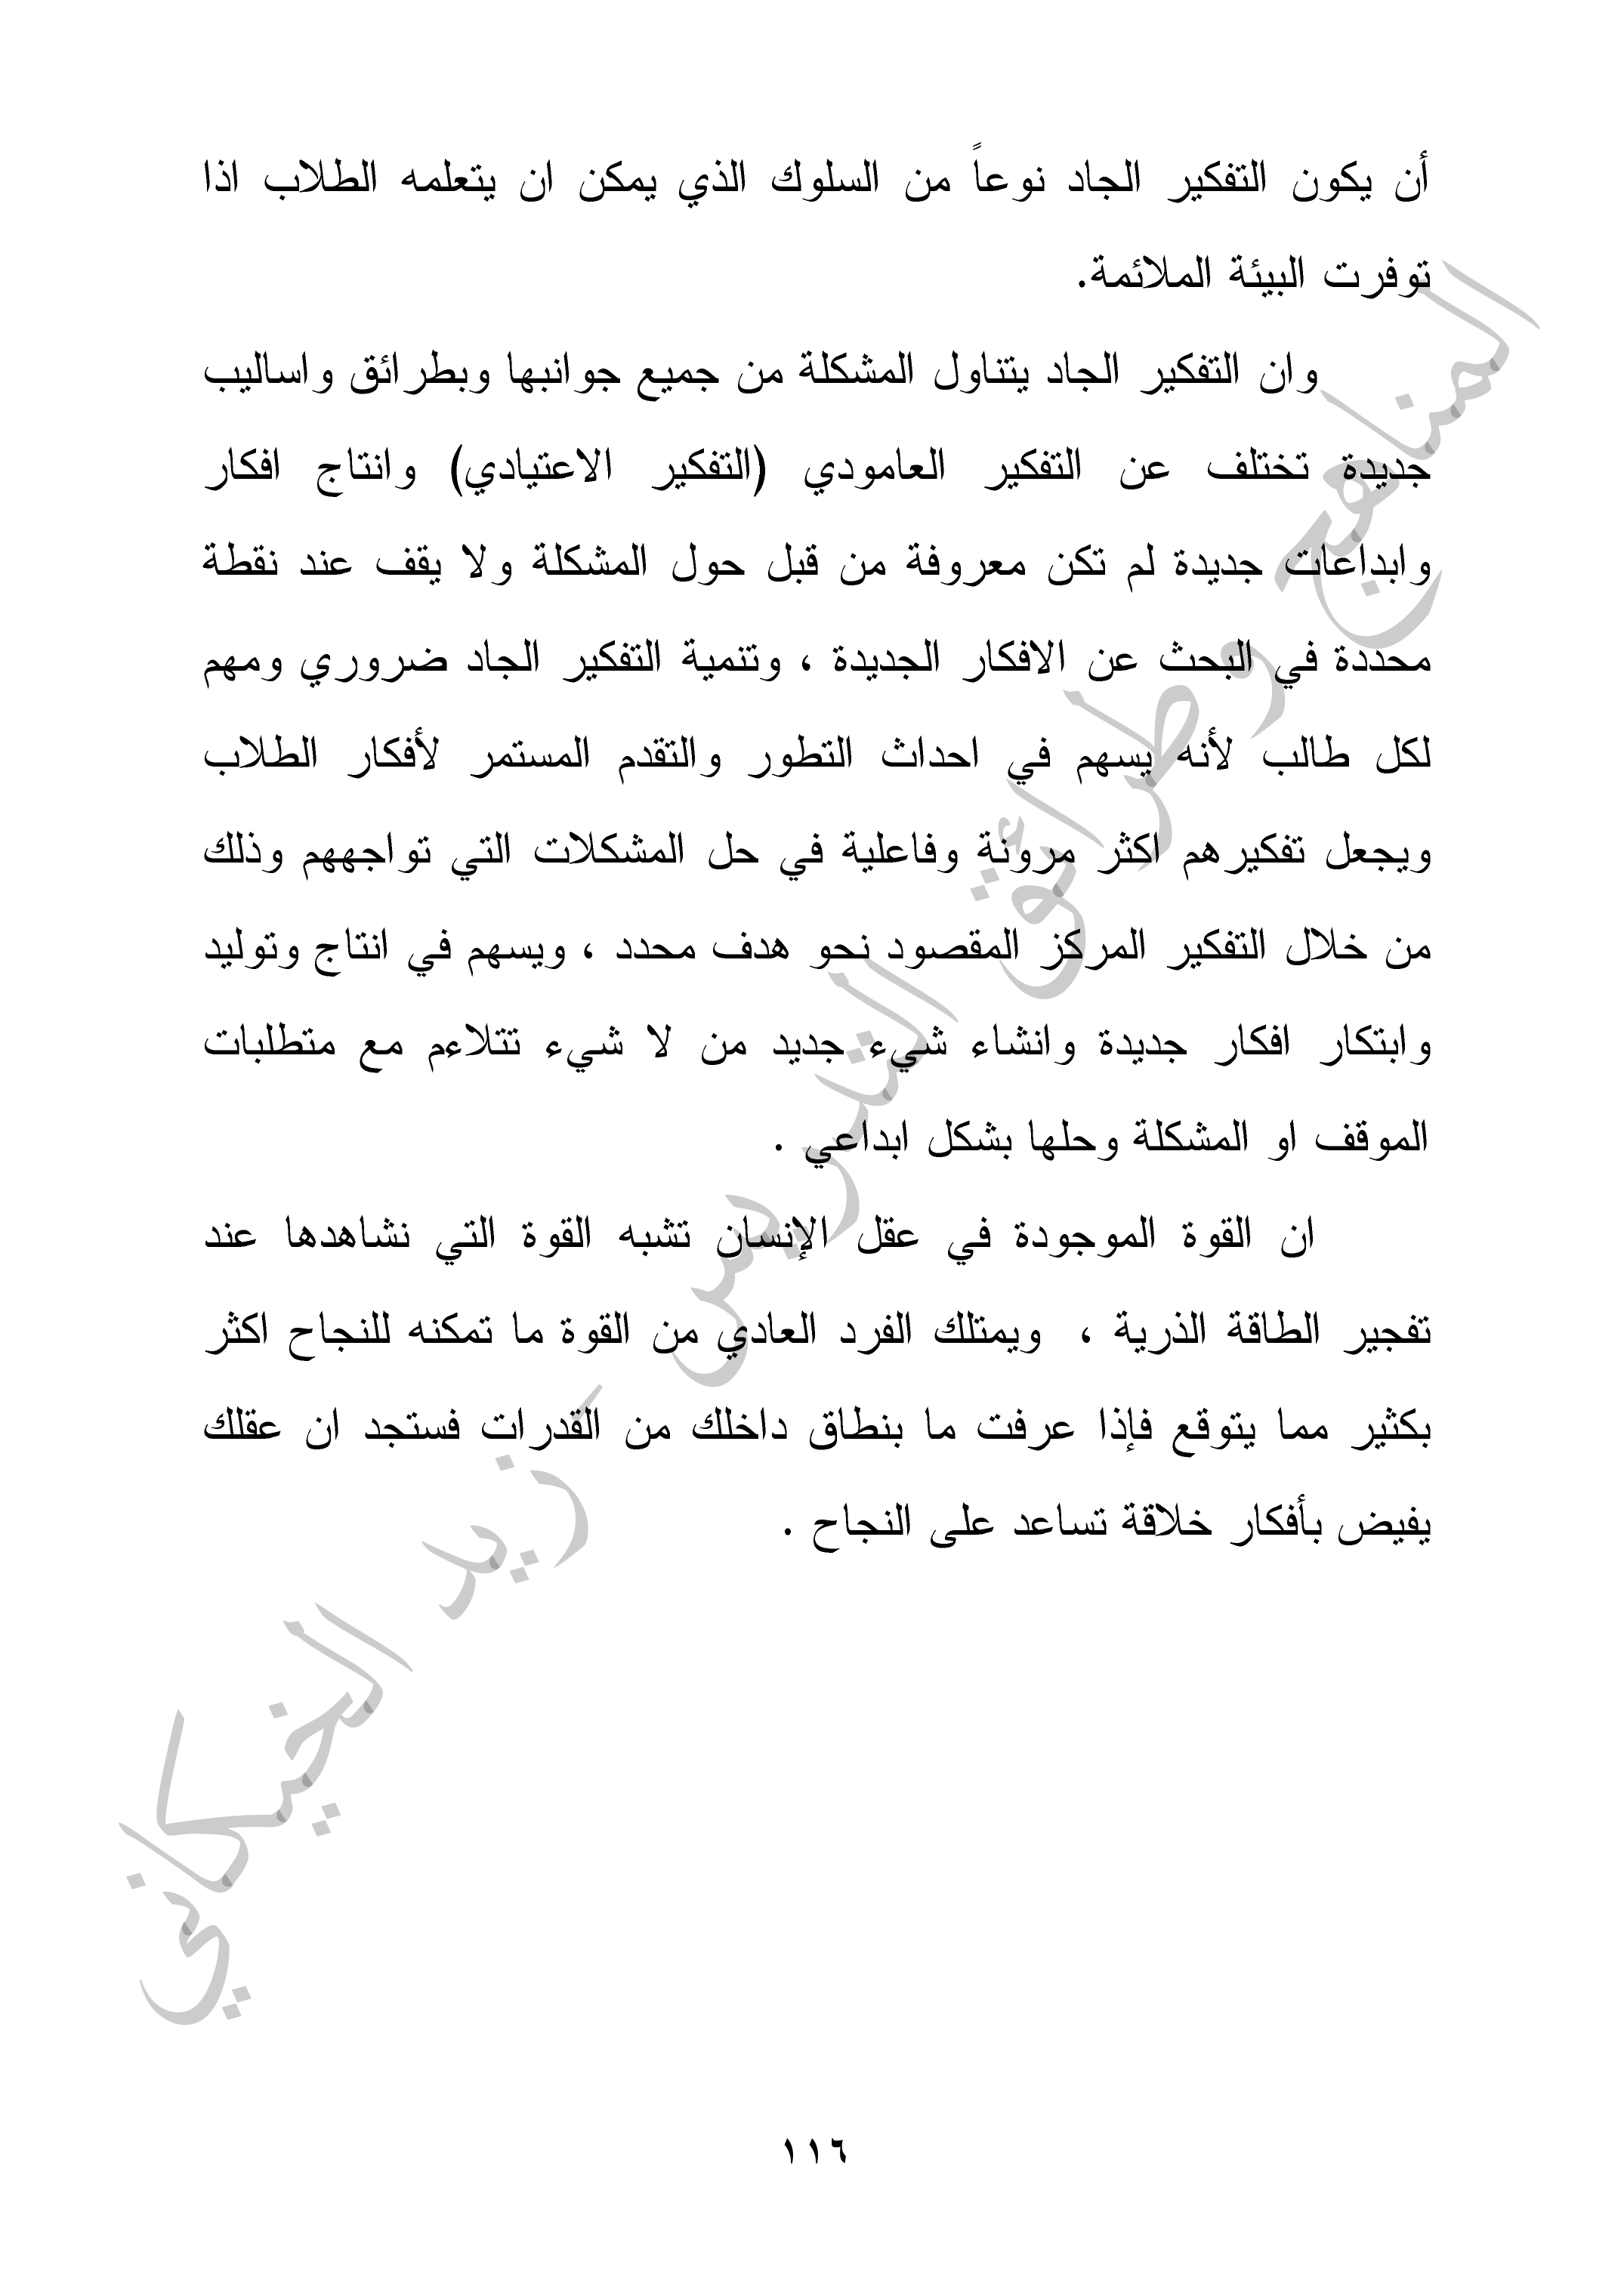 أن يكون التفكير الجاد نوعاً من السلوك الذي يمكن ان يتعلمه الطلاب اذا
توفرت البيئة الملائمة.
وان التفكير الجاد يتناول المشكلة من جميع جوانبها وبطرائق واساليب
جديدة تختلف عن التفكير العامودي (التفكير الاعتيادي) وانتاج افكار
وابداعات جديدة لم تكن معروفة من قبل حول المشكلة ولا يقف عند نقطة
محددة في البحث عن الافكار الجديدة ، وتنمية التفكير الجاد ضروري ومهم
لكل طالب لأنه يسهم في احداث التطور والتقدم المستمر لأفكار الطلاب
ويجعل تفكيرهم اكثر مرونة وفاعلية في حل المشكلات التي تواجههم وذلك
من خلال التفكير المركز المقصود نحو هدف محدد ، ويسهم في انتاج وتوليد
وابتكار افكار جديدة وانشاء شيء جديد من لا شيء تتلاءم مع متطلبات
الموقف او المشكلة وحلها بشكل ابداعي .
ان القوة الموجودة في عقل الإنسان تشبه القوة التي نشاهدها عند
تفجير الطاقة الذرية ، ويمتلك الفرد العادي من القوة ما تمكنه للنجاح اكثر
بكثير مما يتوقع فإذا عرفت ما بنطاق داخلك من القدرات فستجد ان عقلك
يفيض بأفكار خلاقة تساعد على النجاح .
المناهج وطرائق التدريس - زيد الخيكاني
١١٦